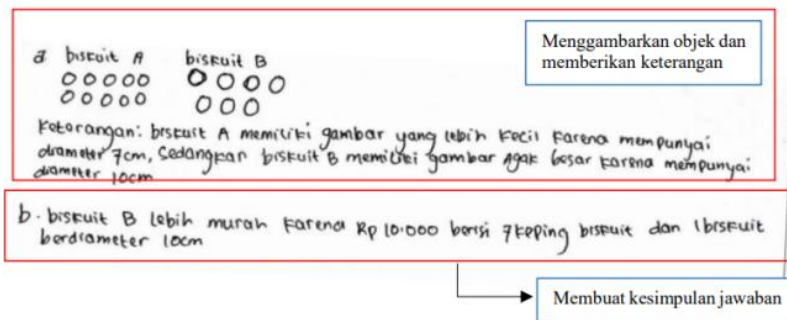 Menggambarkan objek dan
memberikan keterangan
a biskuit A biskuit B
Keterangan: biskuit A memiliki gambar yang lebih kecil karena mempunyai
diameter 7cm, Sedangkan biskuit B memiliki gambar agak besar karena mempunyai
diameter 10cm
b. biskuit B lebih murah karena Rp 10.000 berisi 7 keping biskuit dan 1 biskuit
berdiameter 10cm
Membuat kesimpulan jawaban